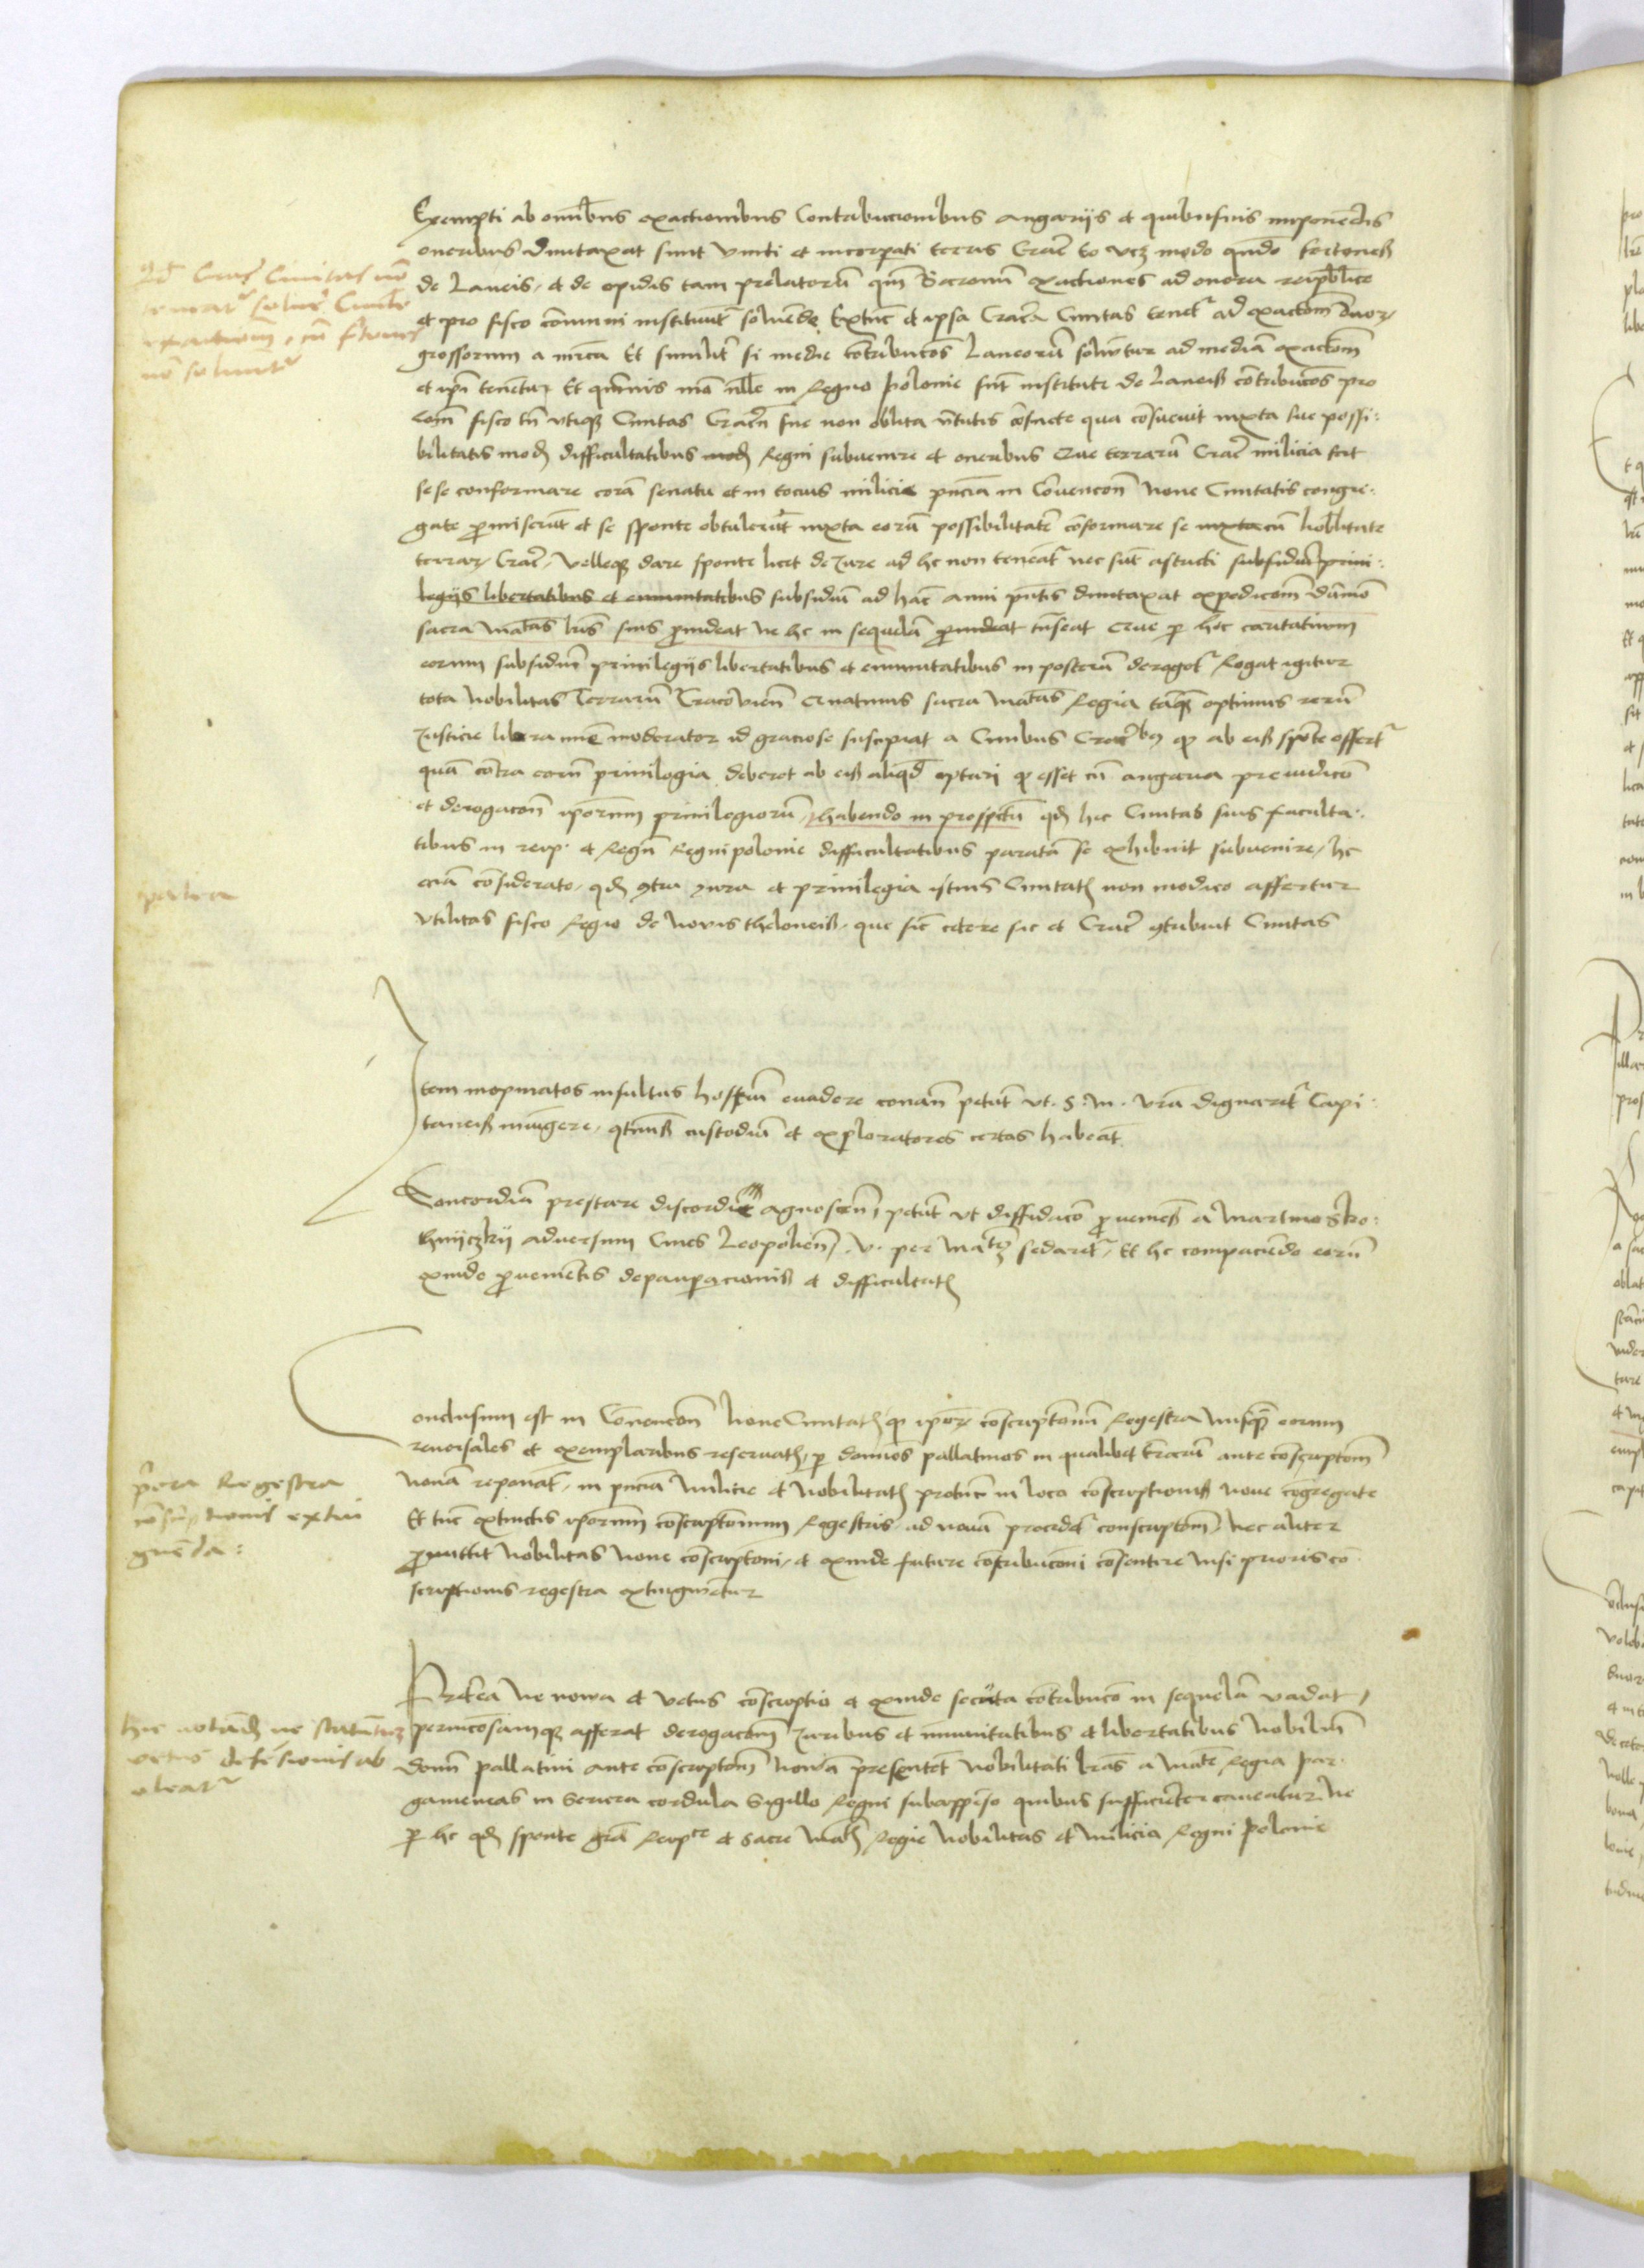 Exempti ab omnibus exactionibus Contribucionibus angarijs et quibusuis imponendis
oneribus dumtaxat sunt vniti et incorporati terris Crac̃ eo vcz modo quando fertones
de Laneis, et de opidis tam prelatorum qm̃ Baronum exactiones ad onera reipublice
et pro fisco comuni instituũt̃ soluende Extunc et ipsa Crac̃n Ciuitas tenet̃ ad exactioñ duoꝝ
grossorum a mrca Et similit̃ si medie contribucões Laneorũ soluũtur ad mediã exactioñ
et ip̃i tenẽtur, Et qm̃uis mõ nlle in Regno polonie sunt institute de Laneis contribucões pro
com̃ fisco tñ vtiqꝫ Ciuitas Crac̃n sue non oblita vtutis consuete qua consueuit iuxta sue possi:
bilitatis modũ difficultatibus modũ Regni subuenire et oneribus que terrarũ Crac̃ milicia fert
sese conformare corã senatu et in tocius milicie pñcia in Conuencoñ Noue Ciuitatis congre:
gate promiserũt et se sponte obtulerũt iuxta eorũ possibilitatẽ conformare se iuxta cũ nobilitate
terraꝝ Crac̃, velleqꝫ dare sponte licet de Jure ad hc non teneãt̃ nec sũt astricti subsidium priui:
legijs libertatibus et emunitatibus subsidiũ ad hanc anni pñtis dumtaxat expedicoñ dumõ
sacra Mãtas lris suis prouideat ne hc in sequelã prouideat trãseat Que p hoc caritatiuum
eorum subsidiũ priuilegijs libertatibus et emunitatibus in posterũ deroget̃ Rogat igitur
tota Nobilitas Terrarũ Cracouieñ quatinus sacra Mãtas Regia tãqꝫ optimus rerũ
Justicie moderator id graciose suscipiat a Ciuibus Crac̃ qꝫ ab eis sponte offert̃
quã contra eorũ priuilegia deberet ab eis aliqd̃ optari qꝫ esset cũ angaria preiudicõ
et derogacoñ ip̃orum priuilegiorũ, habendo in prospectũ qd̃ hec Ciuitas suis faculta:
tibus in reip. et Regñ Regni polonie difficultatibus paratã se exhibuit subuenire, hc
eciã considerato, qd̃ contra iura et priuilegia istius Ciuitatis non modico affertur
vtilitas fisco Regio de nouis theloneis, que sic cetere sic et Crac̃ contribuit Ciuitas
Item inopinatos insultus hostium euadere conañ petũt vt. S. M. vra dignaret̃ Capi:
taneis iniũgere, qtinus custodiã et exploratores certas habeãt
Concordiã prestare discordie agnoscen̄, petũt vt diffidacõ proueniens a Martino Sko:
hnyczky aduersum Ciues Leopolien̄, v. per Mãtẽ sedaret̃, Et hc compaciendo eorũ
exinde prouenientis depaupacionis et difficultatis
Conclusum est in Conuencoñ Noue Ciuitatis, qꝫ ip̃oꝝ conscriptionũ Regestra eorum
reuersales et exemplaribus reseruatis, p dominos pallatinos in qualibet terrarũ ante conscriptioñ
nouã reponãt̃, in pñcia Milicie et Nobilitatis protũc in loco conscriptionis noue congregate
Et tũc extinctis ip̃orum conscriptionum Regestris ad nouã procedet̃ conscriptioñ, nec aliter
promittit Nobilitas Noue conscriptioni, et exinde future contribucõni consentire nisi prioris con
scriptionis regestra extinguẽtur
Preterea ne nowa et vetus conscriptio et exinde secuta contribucõ in sequelã vadat,
perniciosamqꝫ afferat derogacoñ Juribus et imunitatibus et libertatibus Nobiliũ
domñ pallatini ante conscriptioñ nouã presentẽt Nobilitati lrãs a Mate Regia Par:
gameneas in Serica cordula Sigillo Regni subappenso quibus sufficienter caueatur, ne
p hc qd̃ sponte grã Reipce et sacre Mãtis Regie Nobilitas et Milicia Regni polonie
Qd̃ Crac̃ Ciuitas nõ
tenetur soluẽ
exactionem, cũ fertones
nõ soluunt̃
priora Regestra
conscriptionis extin
guẽda:
hic notandũ ne statutum
vetus defensionis ab
oleat̃